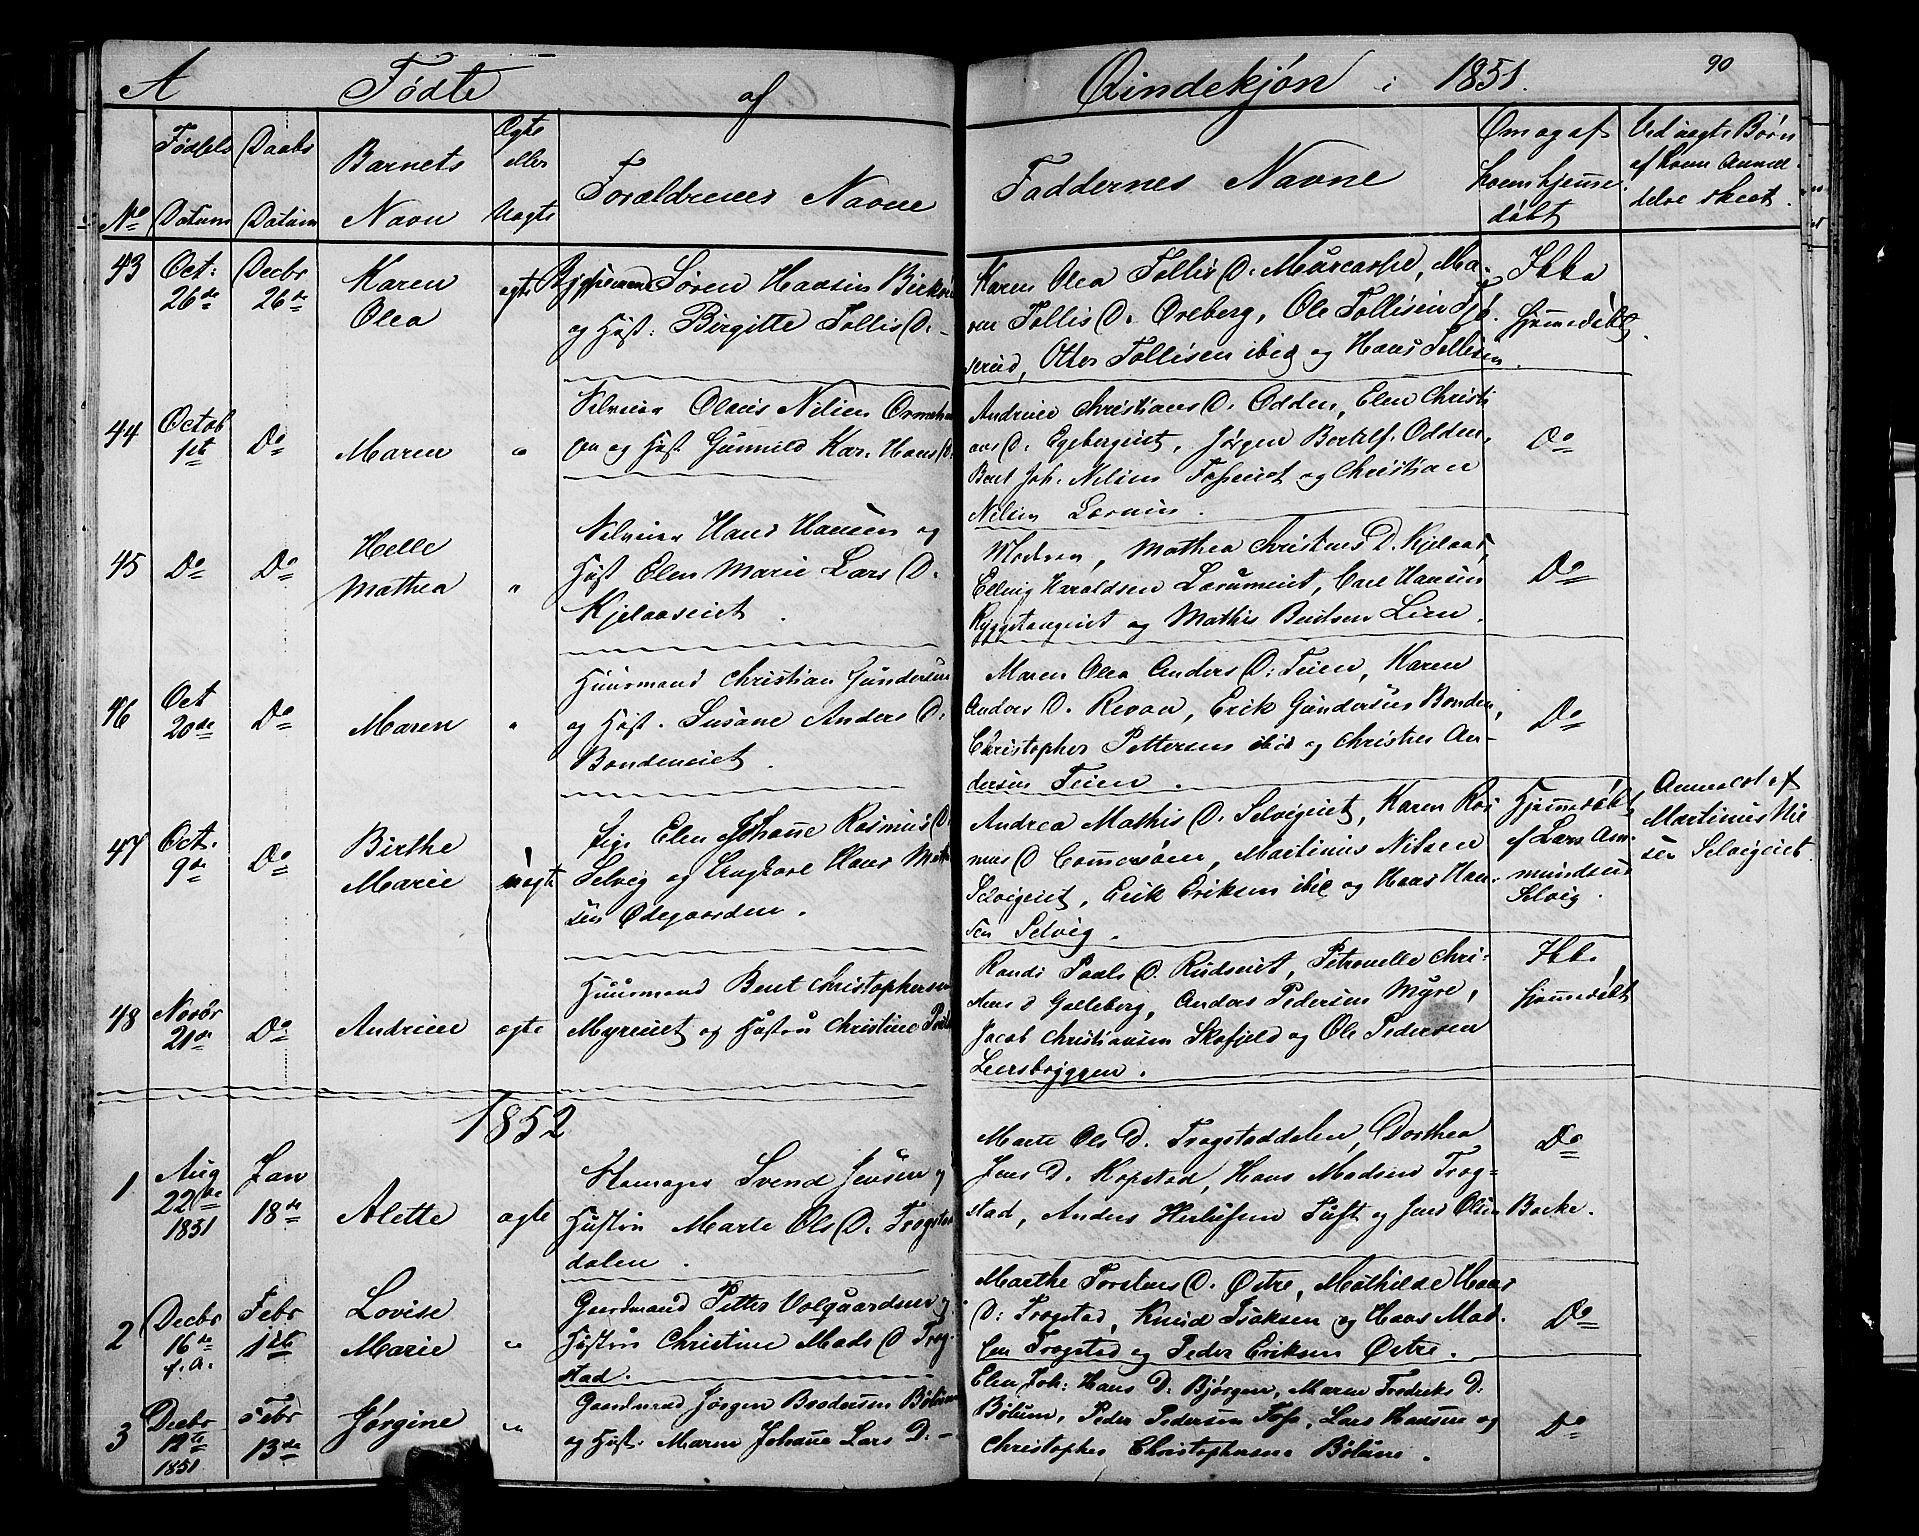 A Fødte af Qindekjøn i 1851. 90
No
Fødsels Datum
Daabs Datum
Barnets Navn
Ægte eller Uægte
Forældrenes Navne
Faddernes Navne
Om og af hvem hjemme døbt
Ved uægte Børn af hvem Anmel-
delse skeet.
43 Oct: 26de Decbr 26de Karen Olea ægte
Søren Hansen
og Hust: Birgitte Tollis D. –
Karen Olea Tollis D. Ma-
ren Tollis D. Øreberg, Ole Tollisen
serud, Otter Tollisen ibid og Hans Tollisen.
Ikke hjemmedøbt.
44 Octob 1ste Do Maren "
Selveier Olaus Nilsen
og Hust Gunnild Kar. Hans D.
Andrine Christians D. Odden, Elen Christi
ans D. Egebergeiet, Jørgen Bertels. Odden,
Bent Joh. Nilsen og Christian
Nilsen
Do
45 Do Do Helle Mathea "
Selveier Hans Hansen og
Hust Elen Marie Lars D.
Kjelaaseiet.
Modren, Mathea Christens D. Kjelaas,
Elling Haraldsen Carl Hansen
og Mathis Lien.
Do
46 Oct 20de Do Maren "
Huusmand Christian Gundersen
og Hust. Susane Anders D.
Bondeneiet.
Maren Olea Anders D: Teien, Karen
Anders D. Revaa, Erik Gundersen Bonden,
Christopher Pettersen ibid og Christen An-
dersen Teien.
Do
47 Oct. 9de Do Birthe Marie uægte
Pige Elen Johanne Rasmus D
Selvig og Ungkarl Hans Mat
sen Ødegaarden.
Andrea Mathis D. Selvigeiet, Karen Ras
mus D Martinus Nilsen
Selvigeiet, Erik Eriksen ibid og Hans Han-
sen Selvig.
Hjemmedøbt
af Lars Am-
mundsen
Selvig.
Anmeldt af
Martinus Nil
sen Selvigeiet.
48 Novbr 21de Do Andrine ægte
Huusmand Bent Christophersen
Myreeiet og Hustru Christine
Randi Paals D. Rudseiet, Petronelle Chri-
stens D Galleberg, Anders Pedersen Myre,
Jacob Christiansen Skafjeld og Ole Pedersen
Leersbryggen.
Ikke hjemmedøbt
1852
1 Aug 22de 1851 Jan 18de Alette ægte
Svend Jensen og
Hustru Marte Ols D. Trogstad
dalen.
Marte Ols D. Trogstaddalen, Dorthea
Jens D. Kopstad, Hans Madsen Trog-
stad, Anders Tuft og Jens Olsen Backe.
Do
2 Decbr 16de f. A. Febr 1ste Lovise Marie "
Gaardmand Petter Volgaardsen og
Hustru Christine Mads D Trog-
stad.
Marthe Torstens D. Østre, Mathilde Hans
D: Trogstad, Knud Isaksen og Hans Mad-
sen Trogstad og Peder Eriksen Østre.
Do
3 Decbr 12te 1851 Febr 13de Jørgine "
Gaardmand Jørgen Brodersen
og Hust: Maren Johanne Lars D. –
Elen Joh: Hans D: Bjørgen, Maren Fredriks D:
Bølum, Peder Pedersen Foss, Lars Hansen og
Christopher Christophersen
Do